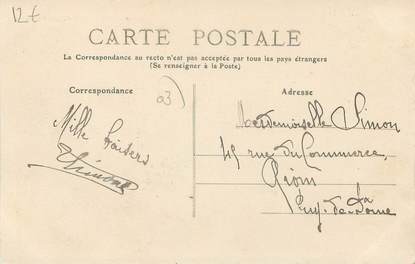 12€
CARTE POSTALE
La Correspondance au recto n'est pas acceptée par tous les pays étrangers
(Se renseigner à la Poste)
Correspondance
03)
Adresse
Mille baisers
Mademoiselle Simon
45 rue du Commerce,
Riom
Puy-de-Dome